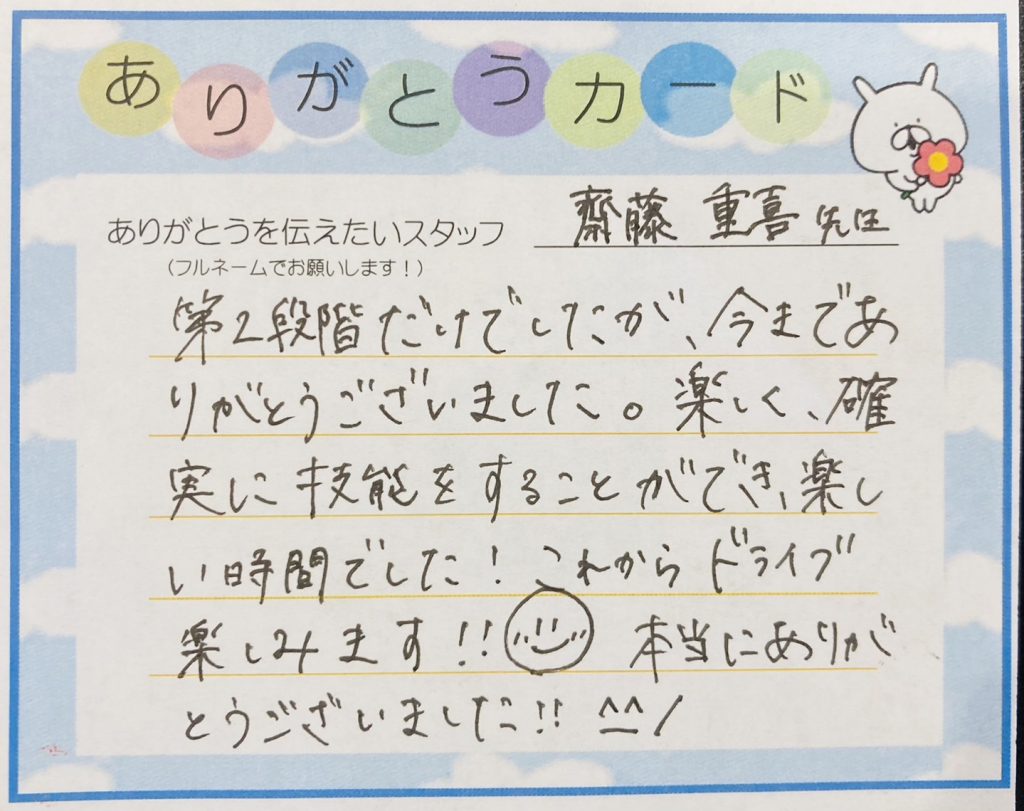 ありがとうカード
ありがとうを伝えたいスタッフ 齋藤 重喜 先生
(フルネームでお願いします!)
第2段階だけでしたが、今まであ
りがとうございました。楽しく、確
実に技能をすることができ、楽し
い時間でした! これからドライブ
楽しみます!! 本当にありが
とうございました!! ^^/